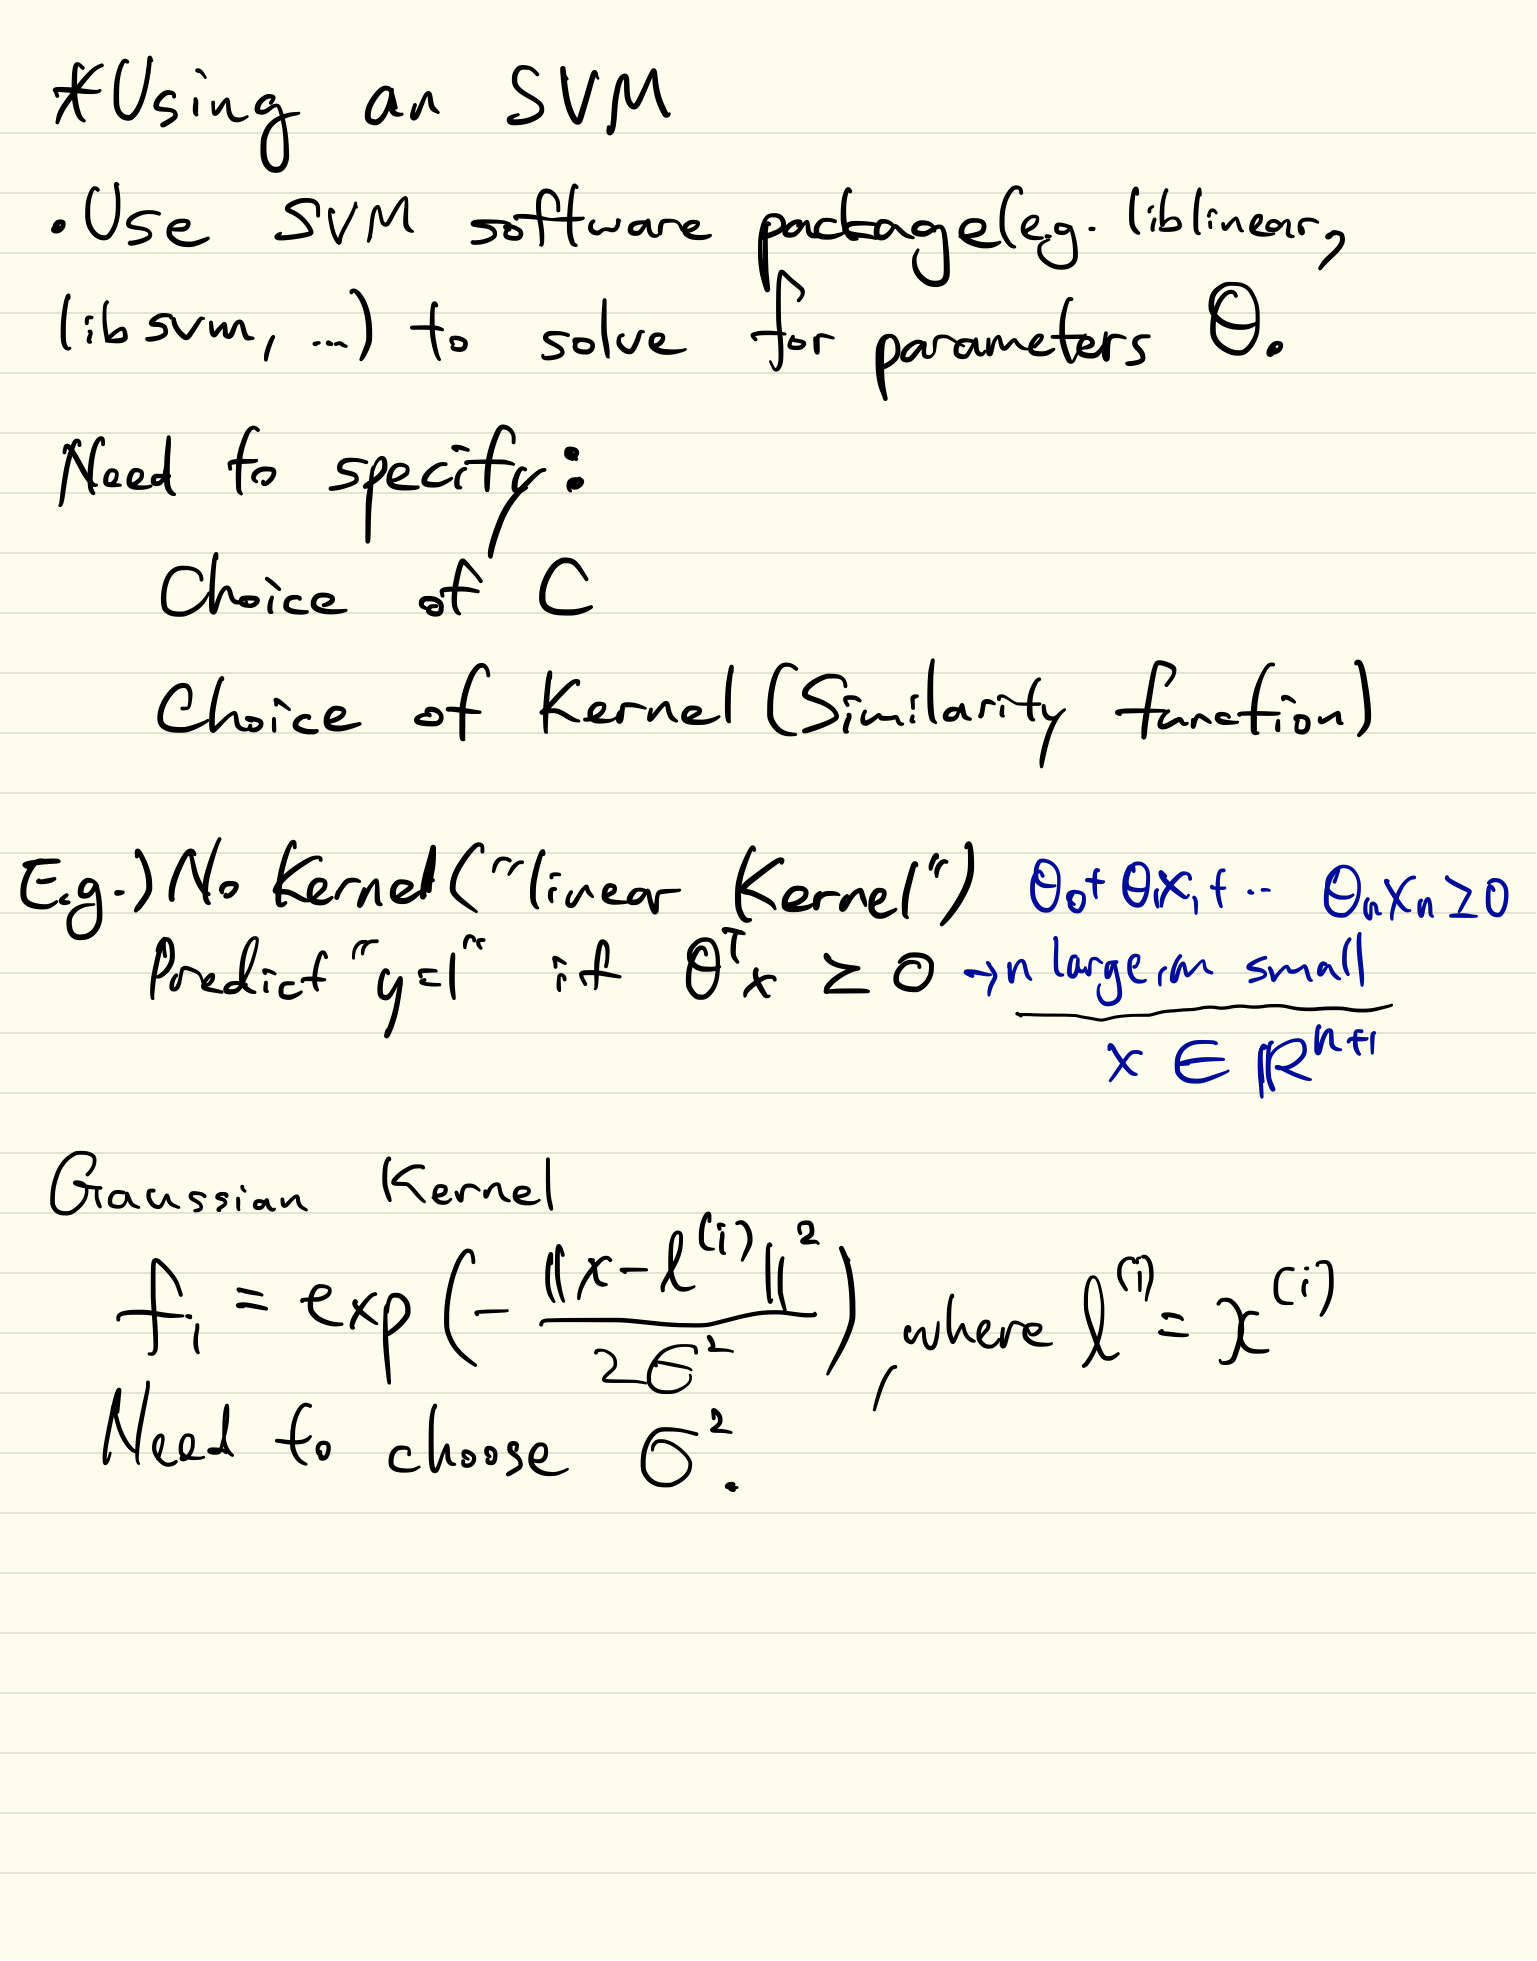 *Using an SVM
•Use SVM software package(e.g. liblinear,
libsvm, ...) to solve for parameters Θ.
Need to specify:
Choice of C
Choice of Kernel (Similarity function)
E.g.) No Kernel ("linear Kernel") θ₀+ θ₁x₁+ ·· θₙxₙ ≥0
Predict "y=1" if θᵀx ≥ 0 →n large, m small
x ∈ ℝⁿ⁺¹
Gaussian Kernel
fᵢ = exp(- ‖x-l⁽ⁱ⁾‖² / 2σ²), where l⁽ⁱ⁾ = x⁽ⁱ⁾
Need to choose σ².